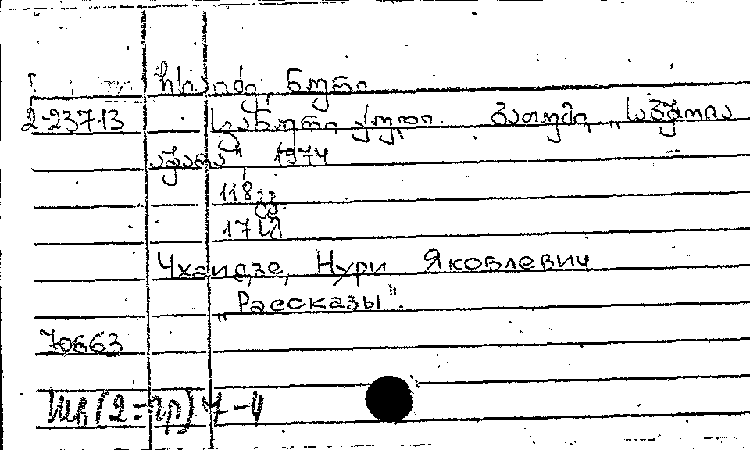 ჩხაიძე, ნური
2-23713 სვანური ქუდი. ბათუმი, „საბჭოთა
აჭარა" 1974
118 გვ.
17 სმ
Чхаидзе, Нури Яковлевич
„Рассказы".
70663
(2=гр) 7-4